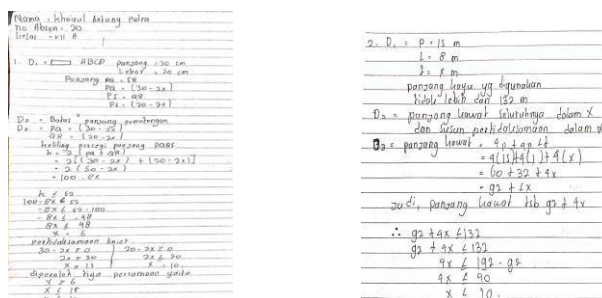 Nama : Khoirul Antony Putra
No Absen : 20
Kelas : VII B
1. D1 = ABCD panjang = 30 cm
Lebar = 20 cm
Panjang PQ = SR
PQ = (30-2x)
PS = QR
PS = (20-2x)
D2 = Batas panjang pemotongan
D3 = PQ = (30-2x)
QR = (20-2x)
keliling persegi panjang PQRS
k = 2 (PQ + QR)
= 2[(30-2x) + (20-2x)]
= 2 (50-2x)
= 100-8x
k ≤ 52
100-8x ≤ 52
-8x ≤ 52-100
-8x ≤ -48
8x ≤ 48
x = 6
pertidaksamaan linier
30-2x ≥ 0 20-2x ≥ 0
2x ≤ 20
x = 10
diperoleh tiga persamaan yaitu
x ≥ 6
x ≤ 15
2. D1 = P = 15 m
l = 8 m
t = x m
panjang kayu yg digunakan
tidak lebih dari 132 m
D2 = panjang kawat seluruhnya dalam x
dan susun pertidaksamaan dalam x
D3 = panjang kawat = 4p + 4l + 4t
= 4(15)+4(8)+4(x)
= 60 + 32 + 4x
= 92 + 4x
Jadi, panjang kawat 92 + 4x
∴ 92 + 4x ≤ 132
92 + 4x ≤ 132
4x ≤ 132 - 92
4x ≤ 40
x ≤ 10.